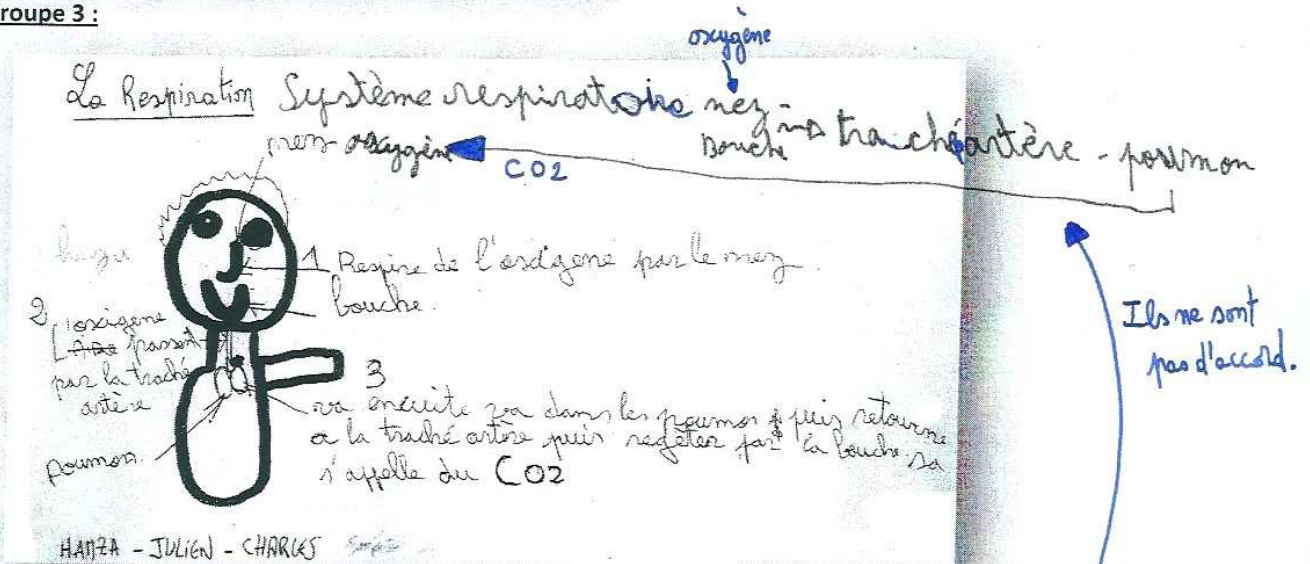 roupe 3 :
oxygène
La Respiration Système respiratoire nez
Bouche -> trachéartère - poumon
nez oxygène
CO2
1 Respire de l'oxigène par le nez
bouche.
2 l'oxigène
passent
par la traché
artère
poumon.
3
va ensuite va dans les poumos puis retourne
a la traché artère puis regêter par la bouche sa
s'appelle du CO2
Ils ne sont
pas d'accord.
HAMZA - JULIEN - CHARLES